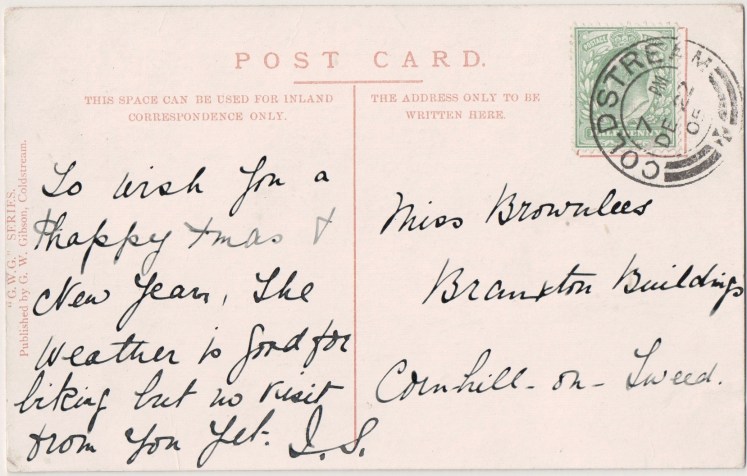 POST CARD.
THIS SPACE CAN BE USED FOR INLAND
CORRESPONDENCE ONLY.
THE ADDRESS ONLY TO BE
WRITTEN HERE.
"G.W.G." SERIES.
Published by G. W. Gibson, Coldstream.
COLDSTREAM
PM
DE
05
HALFPENNY
To wish you a
happy Xmas &
New Year, The
weather is good for
biking but no visit
from you yet. J.S.
Miss Brownlees
Branxton Buildings
Cornhill-on-Tweed.